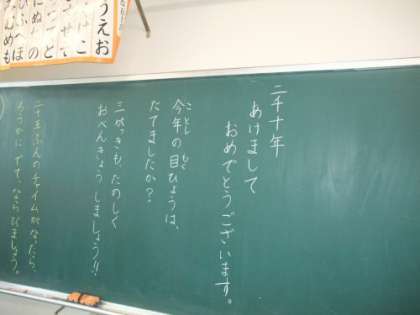 うえお
二千十年
あけまして
おめでとうございます。
ことし もく
今年の目ひょうは、
たてましたか?
三がっきも、たのしく
おべんきょうしましょう!!
二十五ふんのチャイムがなったら、
ろうかに でて、ならびましょう。